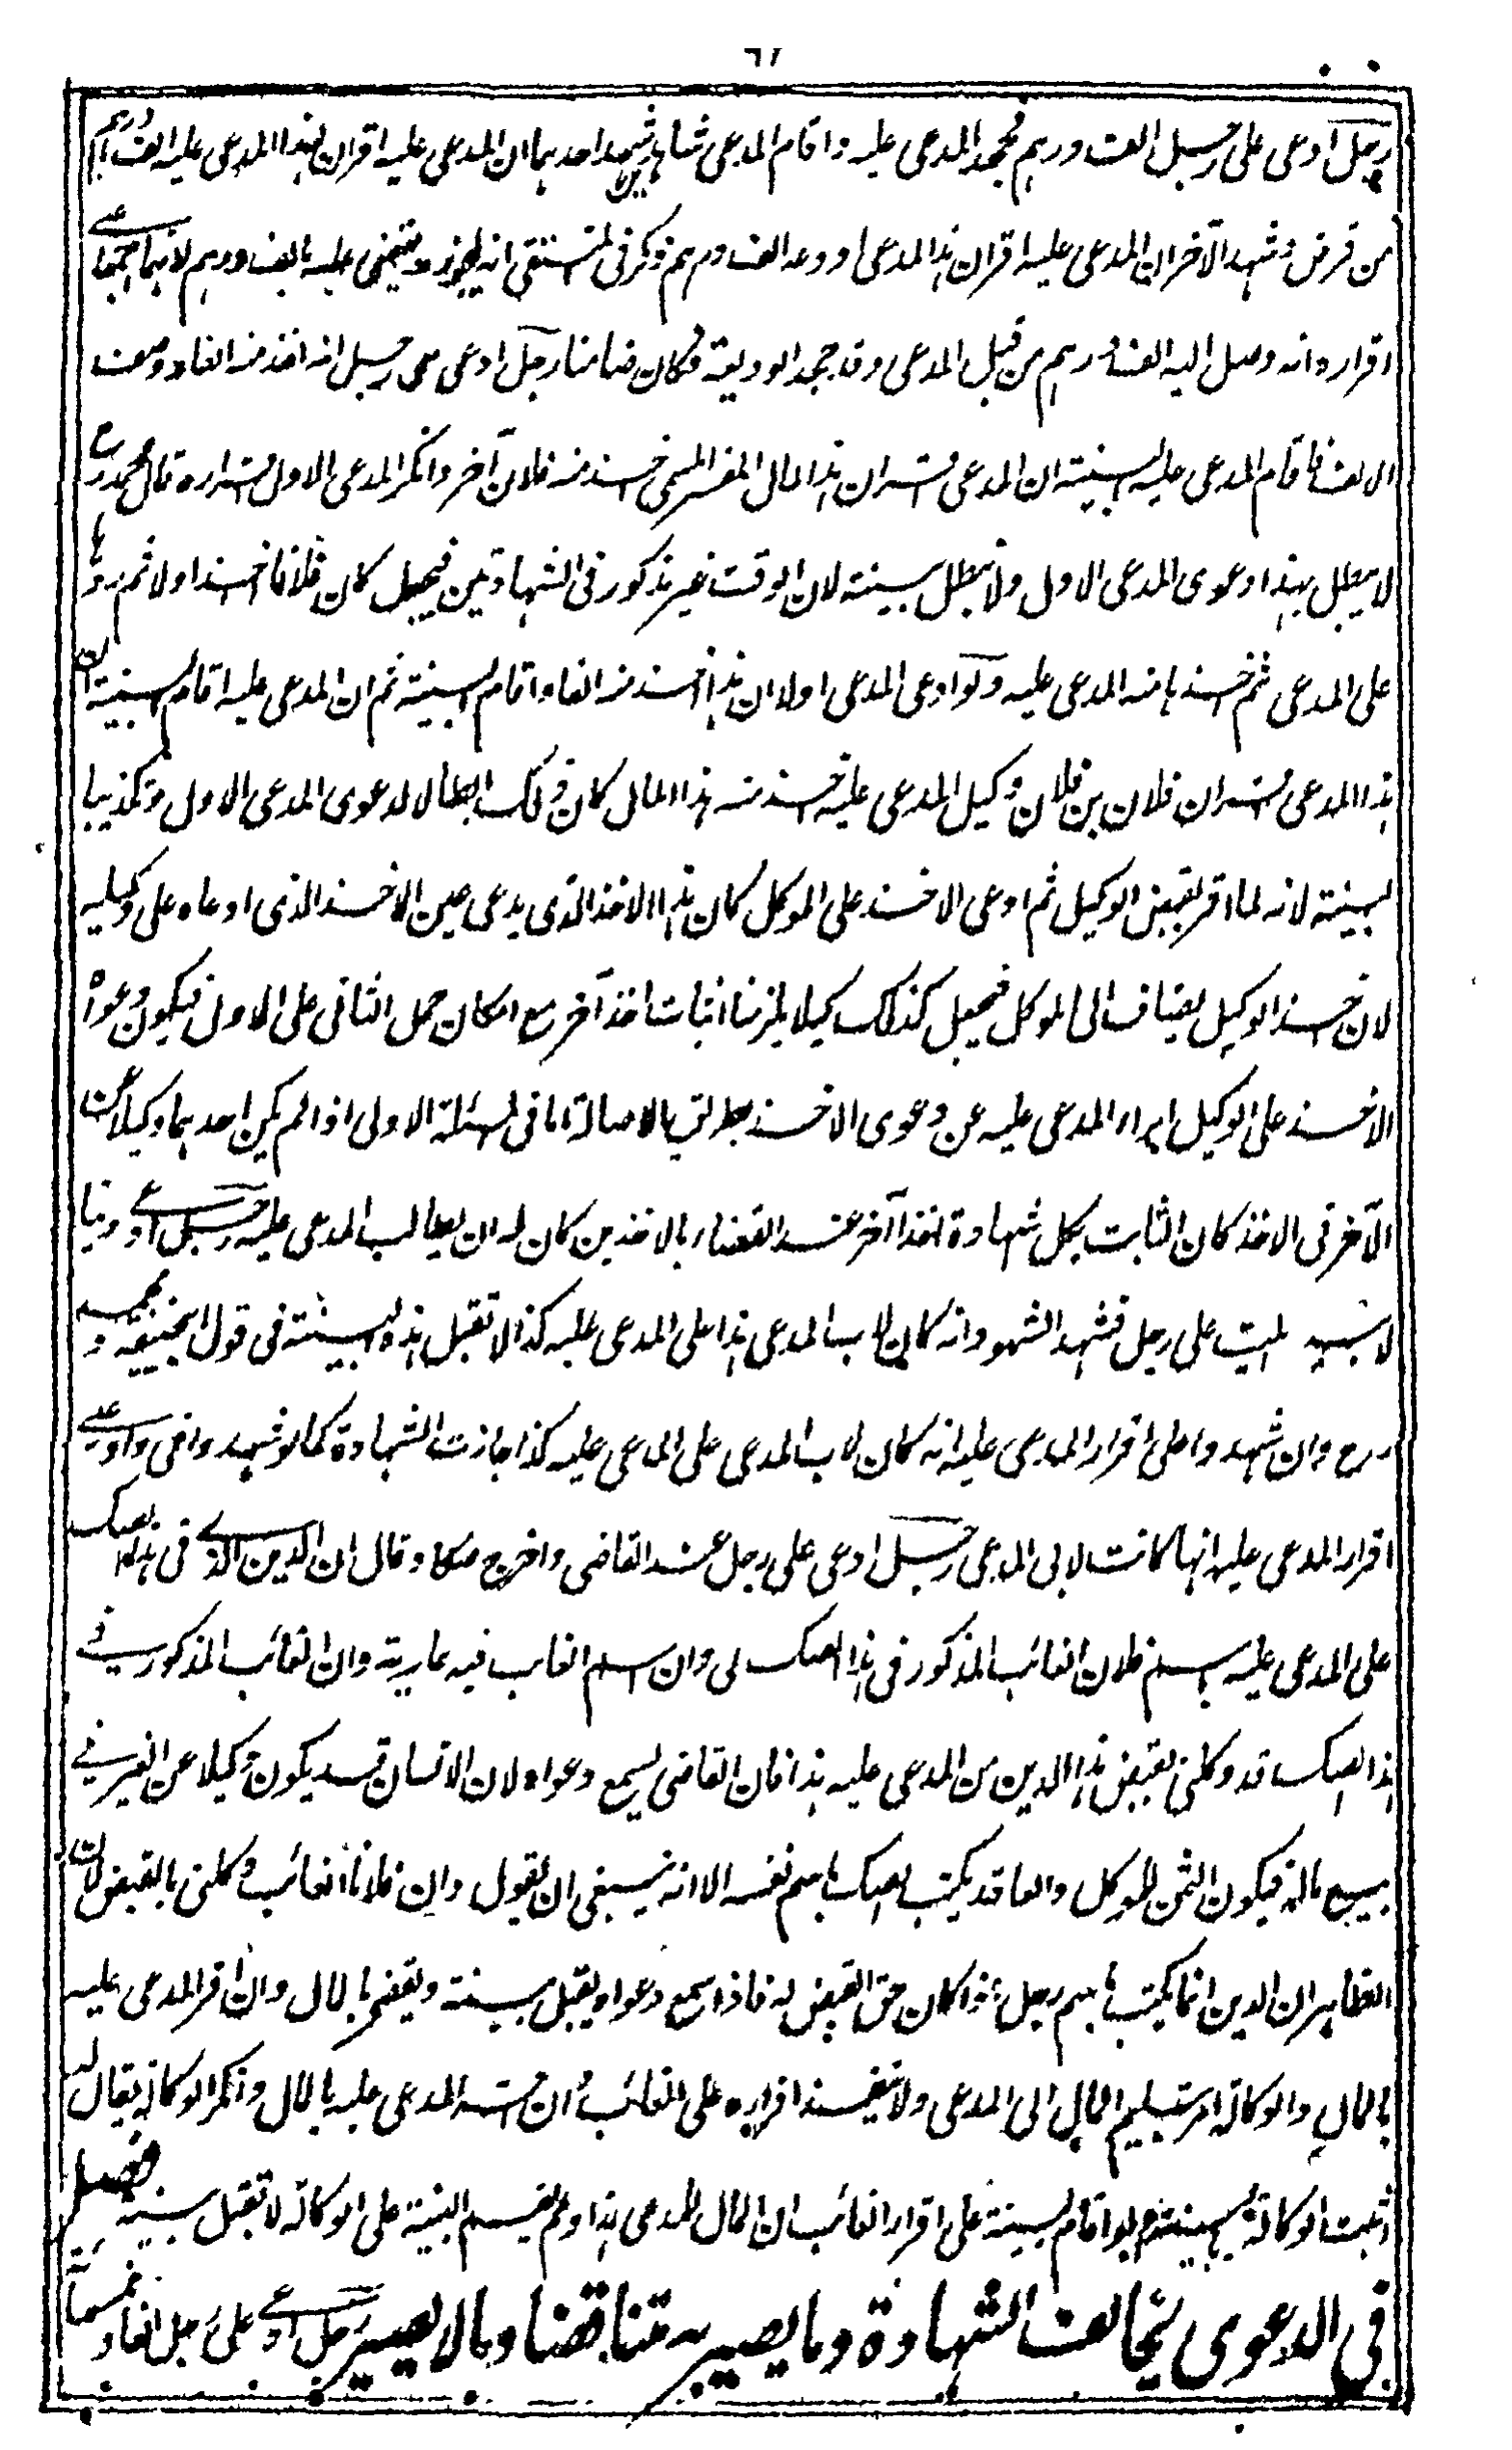 ٦٢
رجل ادعى على رجل الف درهم فجحد المدعى عليه واقام المدعى شاهدين شهد احدهما ان المدعى عليه اقر ان لهذا المدعى عليه الف درهم
من قرض وشهد الآخر ان المدعى عليه اقر ان هذا المدعى اودعه الف درهم ذكر فى المنتقى انه يجوز ويقضى عليه بالف درهم لانهما اجتمعا على
اقراره انه وصل اليه الف درهم من قبل المدعى وقد جحد الوديعة فكان ضامنا رجل ادعى على رجل انه اخذ منه الفا ووصف
الالف فاقام المدعى عليه البينة ان المدعى اقر ان هذا المال المفسر المسمى اخذ منه فلان آخر وانكر المدعى الاول اقراره قال محمد رح
لا يبطل بهذا دعوى المدعى الاول ولا يبطل بينته لان الوقت غير مذكور فى الشهادتين فيجعل كان فلانا اخذ اولا ثم ردها
على المدعى ثم اخذها منه المدعى عليه ولو ادعى المدعى اولا ان هذا اخذ منه الفا واقام البينة ثم ان المدعى عليه اقام البينة ان
هذا المدعى اقر ان فلان بن فلان وكيل المدعى عليه اخذ منه هذا المال كان ذلك ابطالا لدعوى المدعى الاول وتكذيبا
لبينته لانه لما اقر بقبض الوكيل ثم ادعى الاخذ على الموكل كان هذا الاخذ الذى يدعى عين الاخذ الذى ادعاه على وكيله
لان اخذ الوكيل يضاف الى الموكل فيجعل كذلك كيلا يلزمنا اثبات اخذ آخر مع امكان حمل الثانى على الاول فيكون دعواه
الاخذ على الوكيل ابراء المدعى عليه عن دعوى الاخذ بطريق الاصالة اما فى المسئلة الاولى اذا لم يكن احدهما وكيلا عن
الآخر فى الاخذ كان الثابت بكل شهادة اخذا آخر عند القضاء بالاخذين كان له ان يطالب المدعى عليه رجل ادعى دينا
لابيه الميت على رجل فشهد الشهود انه كان لاب المدعى هذا على المدعى عليه كذا لا تقبل هذه البينة فى قول ابيحنيفة ومحمد
رح وان شهدوا على اقرار المدعى عليه انه كان لاب المدعى على المدعى عليه كذا جازت الشهادة كما لو شهدوا فى دار على
اقرار المدعى عليه انها كانت لابى المدعى رجل ادعى على رجل عند القاضى واخرج صكا وقال ان الدين الذى فى هذا الصك
على المدعى عليه باسم فلان الغائب المذكور فى هذا الصك لى وان اسم الغائب فيه عارية وان الغائب المذكور فى
هذا الصك قد وكلنى بقبض هذا الدين من المدعى عليه هذا فان القاضى يسمع دعواه لان الانسان قد يكون وكيلا عن الغير فى
بيع ماله فيكون الثمن للموكل والعاقد يكتب الصك باسم نفسه الا انه ينبغى ان يقول وان فلانا الغائب وكلنى بالقبض لان
الظاهر ان الدين انما يكتب باسم رجل اذا كان حق القبض له فاذا سمع دعواه يقبل بينته ويقضى بالمال وان اقر المدعى عليه
بالمال والوكالة امر بتسليم المال الى المدعى ولا ينفذ اقراره على الغائب وان اقر المدعى عليه بالمال وانكر الوكالة يقال له
اثبت الوكالة بالبينة ولو اقام البينة على اقرار الغائب ان المال للمدعى هذا ولم يقم البينة على الوكالة لا تقبل بينته فصل
فى الدعوى يخالف الشهادة وما يصير به متناقضا وما لا يصير رجل ادعى على رجل الفا وخمسمائة